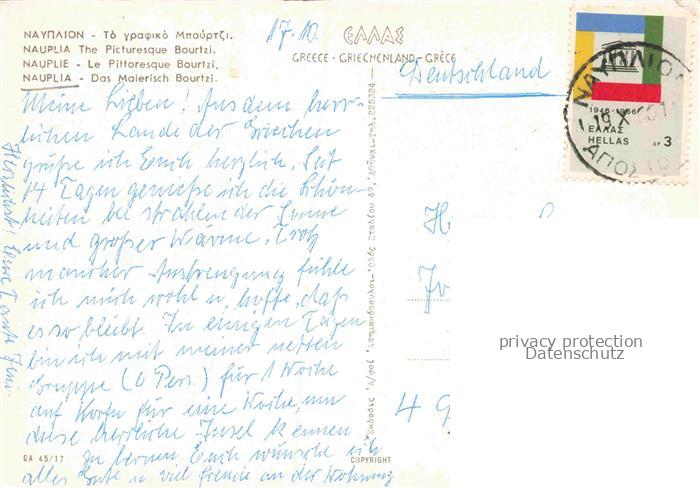 ΝΑΥΠΛΙΟΝ - Τὸ γραφικό Μπούρτζι.
NAUPLIA The Picturesque Bourtzi.
NAUPLIE - Le Pittoresque Bourtzi.
NAUPLIA - Das Malerisch Bourtzi.
17.10.
ΕΛΛΑΣ
GREECE - GRIECHENLAND - GRÈCE
Deutschland
Meine Lieben! Aus dem herr-
lichen Lande der Griechen
grüße ich Euch herzlich. Seit
14 Tagen genieße ich die Schön-
heiten bei strahlender Sonne
und großer Wärme. Trotz
mancher Anstrengung fühle
ich mich wohl u. hoffe, daß
es so bleibt. In einigen Tagen
bin ich mit meiner netten
Gruppe (6 Pers.) für 1 Woche
auf Korfu für eine Woche, um
diese herrliche Insel kennen
zu lernen. Euch wünsche ich
alles Gute u. viel Freude an der Wohnung
Herzlichst! Eure Tante
1946-1966
ΕΛΛΑΣ
HELLAS
ΔΡ. 3
ΝΑΥΠΛΙΟΝ
19 X
4 9
privacy protection
Datenschutz
GA 45/17
COPYRIGHT